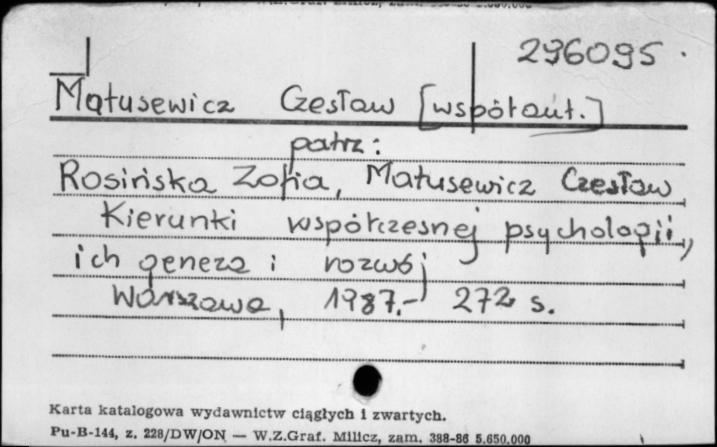 296095
Matusewicz Czesław [współaut.]
patrz:
Rosińska Zofia, Matusewicz Czesław
Kierunki współczesnej psychologii,
ich geneza i rozwój
Warszawa, 1987.- 272 s.
Karta katalogowa wydawnictw ciągłych i zwartych.
Pu-B-144, z. 228/DW/ON — W.Z.Graf. Milicz, zam. 388-86 5.650.000